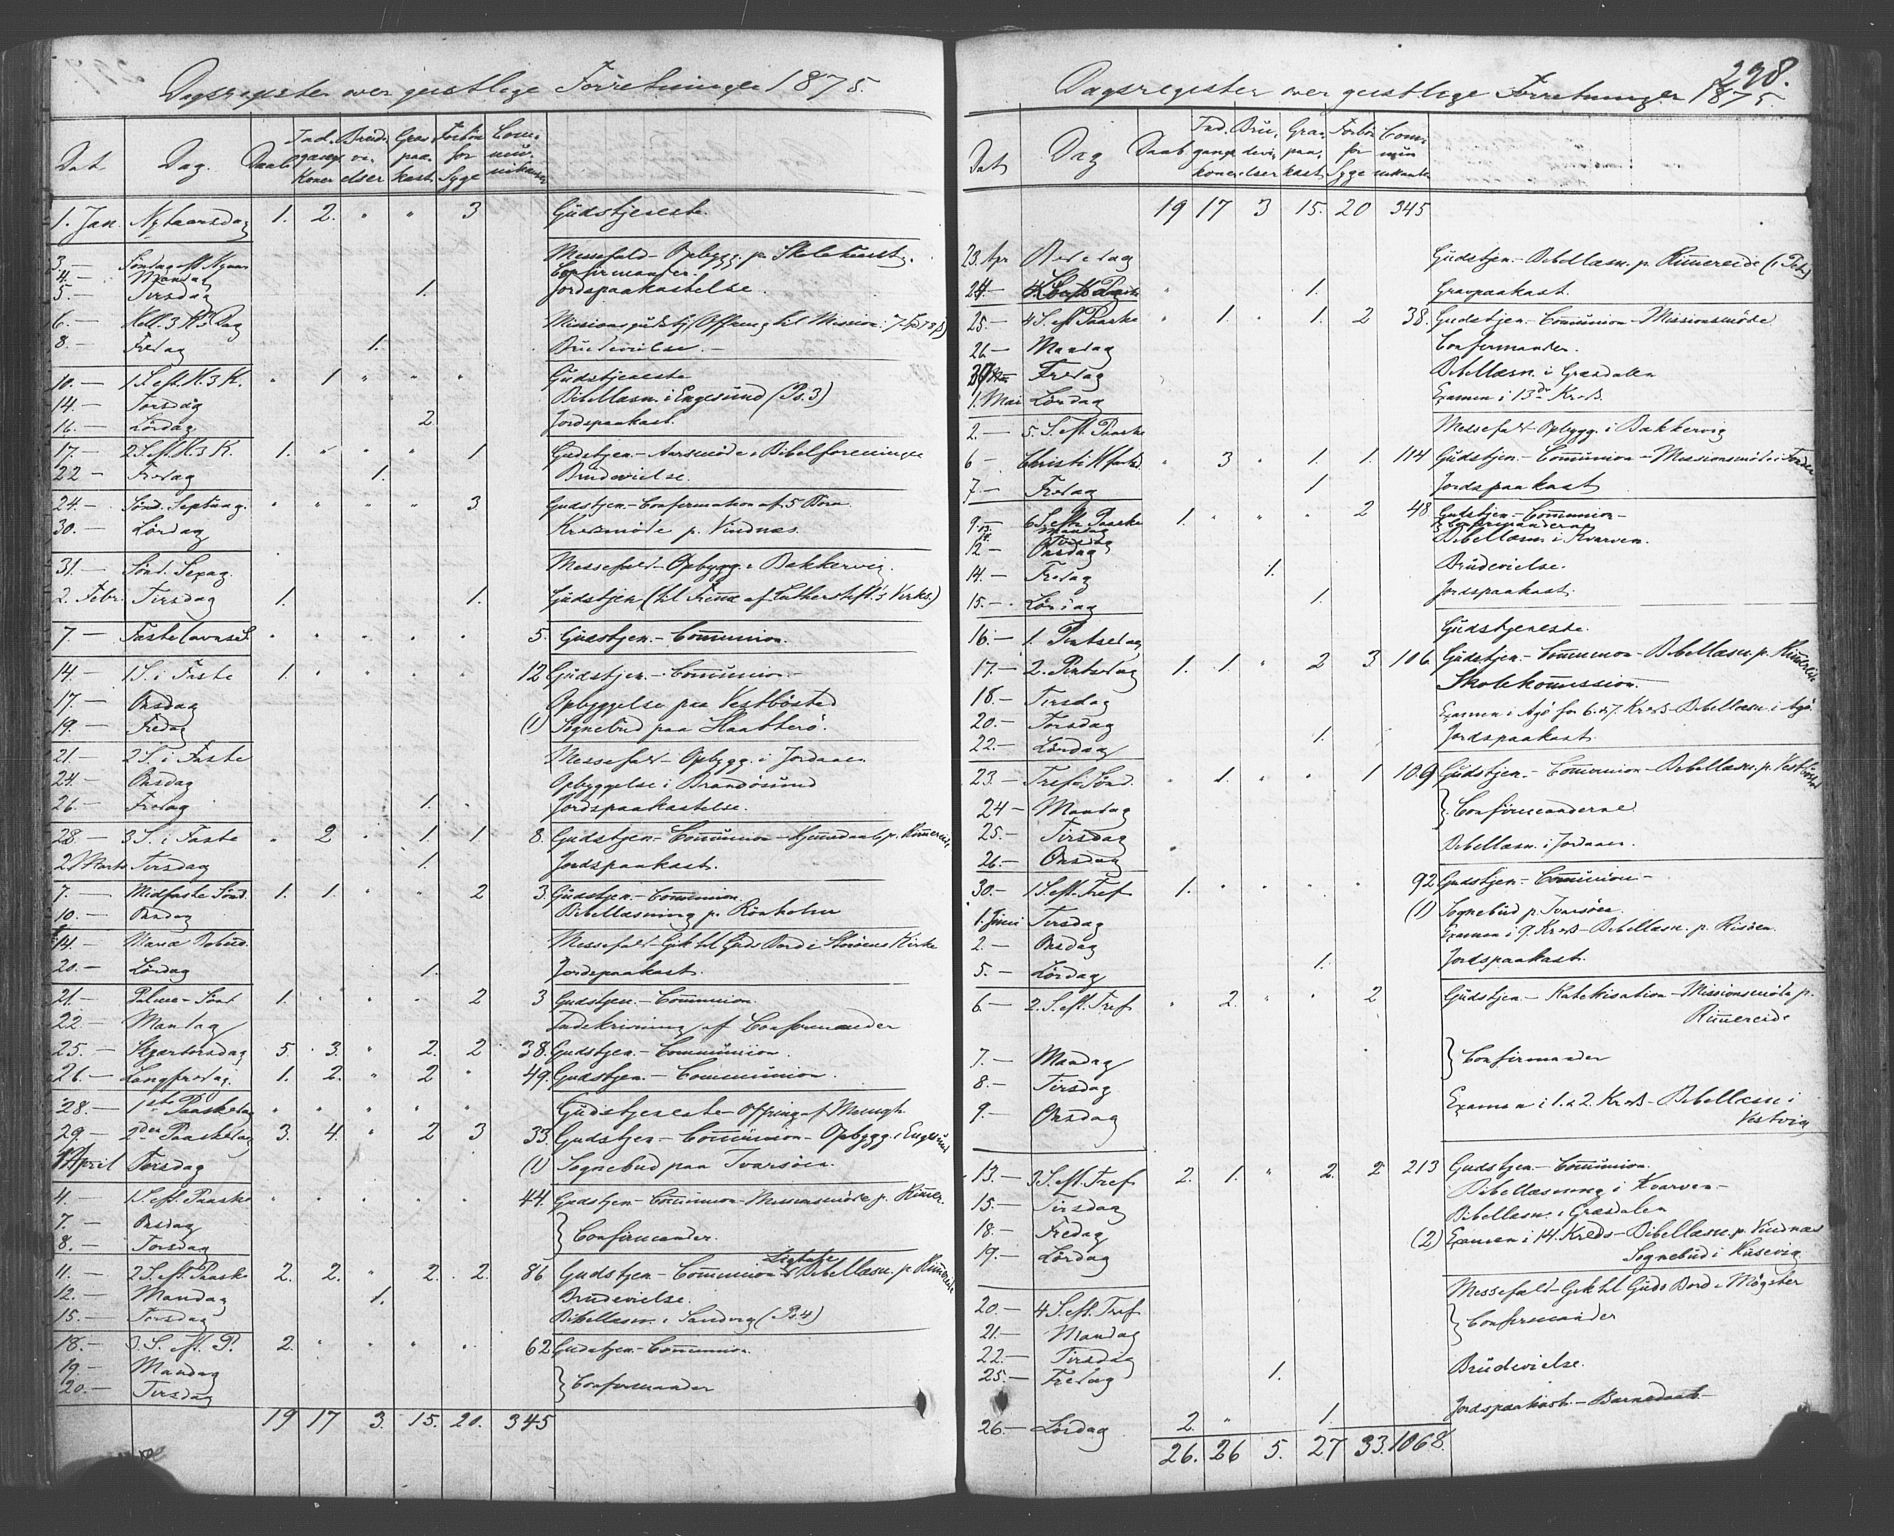 Dagsregister over geistlige Forretninger 1875.
Dat Dag. Daab Ind. gangs Koner Brude vi- elser Grav paa- kast. Forbøn for Syge Com- mu- nikanter
1. Jan Nytaarsdag 1. 2. " " 3 Gudstjeneste.
3. — Søndag eft Nyaar Messefald - Opbygg. p.
4. — Mandag Confirmander.
5. — Tirsdag 1. Jordspaakastelse.
6. — Hell. 3 K. Dag Missionsgudstj Offring til Mission.
8. — Fredag 1. Brudevielse. —
10. — 1 S. eft. H. 3 K. " 1 " " " Gudstjeneste
14. — Torsdag Bibellæsn. i Engesund (Ps. 3)
16. — Lördag. 2. Jordspaakast.
17. — 2 S. eft. H. 3 K. 1. " " " 1 Gudstjen. - Aarsmøde i Bibelforeningen
22 — Fredag 1. Brudevielse.
24. — Sønd. Septuag. " " " " 3 Gudstjen. - Confirmation af 5 Børn
30. — Lördag Kredsmöde p. Vindnæs.
31. — Sønd. Sexag. Messefald - Opbygg. i Bakkervig.
2. Febr. Tirsdag 1. 1. Gudstjen. (til Fremme af Lutherstift.'s Virks.)
7. — Fastelavnss. " " " " " 5. Gudstjen. - Communion.
14. — 1 S. i Faste 1. " " " " 12 Gudstjen. - Communion. -
17. — Onsdag Opbyggelse paa Vestbøstad
19. — Fredag (1) Sognebud paa
21. — 2 S. i Faste Messefald - Opbygg. i Jordaaen
24. — Onsdag Opbyggelse i Brandøsund
26. — Fredag 1. Jordspaakastelse.
28. — 3 S. i Faste " 2 " 1. 1 8. Gudstjen. - Communion - Hjemmedaab p. Rimmereide
2 Marts Tirsdag 1. Jordspaakast.
7. — Midfaste Sønd. 1. 1. " " 2 3. Gudstjen. - Communion.
10. — Onsdag Bibellæsning p. Rönholm
14. — Mariæ Bebud. Messefald - Gik til Guds Bord i Storöens Kirke
20. — Lördag 1. Jordspaakast.
21. — Palme-Sönd 1. " " " 2 3 Gudstjen. - Communion.
22 — Mandag Indskrivning af Confirmander
25. — Skjærtorsdag 5. 3. " 2. 2 38. Gudstjen. - Communion.
26. — Langfredag. 1. 2. " 2 " 49. Gudstjen. - Communion.
28. — 1ste Paaskedag " " " " " Gudstjeneste - Offring af Menigh.
29. — 2den Paaskedag 3. 4. " 2 3 33. Gudstjen - Communion - Opbygg. i Engesund
1 April Torsdag (1) Sognebud paa Tvarsöen.
4. — 1 S. eft. Paaske " " " " " 44. Gudstjen - Communion - Missionsmöde p. Rimmer.
7. — Onsdag
8. — Torsdag } Confirmander.
11. — 2 S. eft. Paaske 2. 2. " 2. 2. 86 Gudstjen - Communion - Bibellæsn. p. Rimmereide
12. — Mandag 1. Brudevielse.
15. — Torsdag Bibellæsn. i Sandvig (Ps. 4)
18. — 3 S. eft. P. 2. " " " " 62 Gudstjen. - Communion
19. — Mandag
20. — Tirsdag } Confirmander
19 17 3 15. 20. 345
298.
Dagsregister over geistlige Forretninger 1875.
Dat Dag Daab Ind gangs koner Bru, devi, elser Gra, paa, kast. Forbön for Syge Com- mun nikanter
19 17 3 15. 20 345
23. Apr Bededag Gudstjen. - Bibellæsn. p. Rimmereide
24 — 1. Gravpaakast.
25. — 4 S. eft Paaske " 1. " 1. 2 38. Gudstjen. Communion - Missionsmöde
26 — Mandag Confirmander.
Fredag Bibellæsn. i Græsdalen
1. Mai Lördag Examen i 13de Kreds.
2. — 5. S. eft. Paaske Messefald - Opbygg. i Bakkervig
6 — Christi H.fartsd " 3 " 1. 1. 114 Gudstjen - Communion - Missionsmöde i
7. — Fredag 1 Jordspaakast
9. — 6 S. eft. Paaske 1. " " " 2 48 Gudstjen - Communion -
Mandag Tirsdag Confirmanderne
12 — Onsdag Bibellæsn. i Kvarven.
14. — Fredag 1. Brudevielse.
15. — Lördag 1. Jordspaakast.
16. — 1. Pintsedag Gudstjeneste.
17. — 2. Pintsedag 1. 1. " 2 3 106. Gudstjen. - Communion - Bibellæsn. p. Rimmereide
18. — Tirsdag Skolekommission.
20. — Torsdag Examen i Agö for 6. & 7. Kreds - Bibellæsn. i Agö.
22. — Lördag 1. Jordspaakast.
23. — Tref. Sönd. " 1. " " 1 109 Gudstjen. - Communion - Bibellæsn. p. Vestbøstad
24 — Mandag
25. — Tirsdag } Confirmanderne
26. — Onsdag Bibellæsn. i Jordaaen.
30. — 1 S. eft. Tref 1. " " " " 92 Gudstjen - Communion -
1. Juni Tirsdag (1) Sognebud p. Tvarsöen.
2. — Onsdag Examen i 9. Kreds - Bibellæsn. p. Risöen
5. — Lördag 1. Jordspaakast.
6 — 2. S. eft. Tref " 2. " " 2 Gudstjen - Katekisation - Missionsmöde p.
Rimmereide
7. — Mandag
8. — Tirsdag } Confirmander
9. — Onsdag Examen i 1. & 2. Kreds - Bibellæsn i
Vestvig
13. — 3 S. eft. Tref 2. 1. " 2. 2 213 Gudstjen - Communion.
15. — Tirsdag Bibellæsning i Kvarven -
18. — Fredag Bibellæsn. i Græsdalen
19. — Lördag (2) Examen i 14. Kreds - Bibellæsn. p. Vindnæs
Sognebud i Husevig
20. — 4 S. eft. Tref Messefald - Gik til Guds Bord i Møgster
21. — Mandag
22. — Tirsdag } Confirmander
25. — Fredag 1. Brudevielse.
26. — Lördag 2. " 1. Jordspaakast - Barnedaab
26. 26 5. 27 33. 1068.